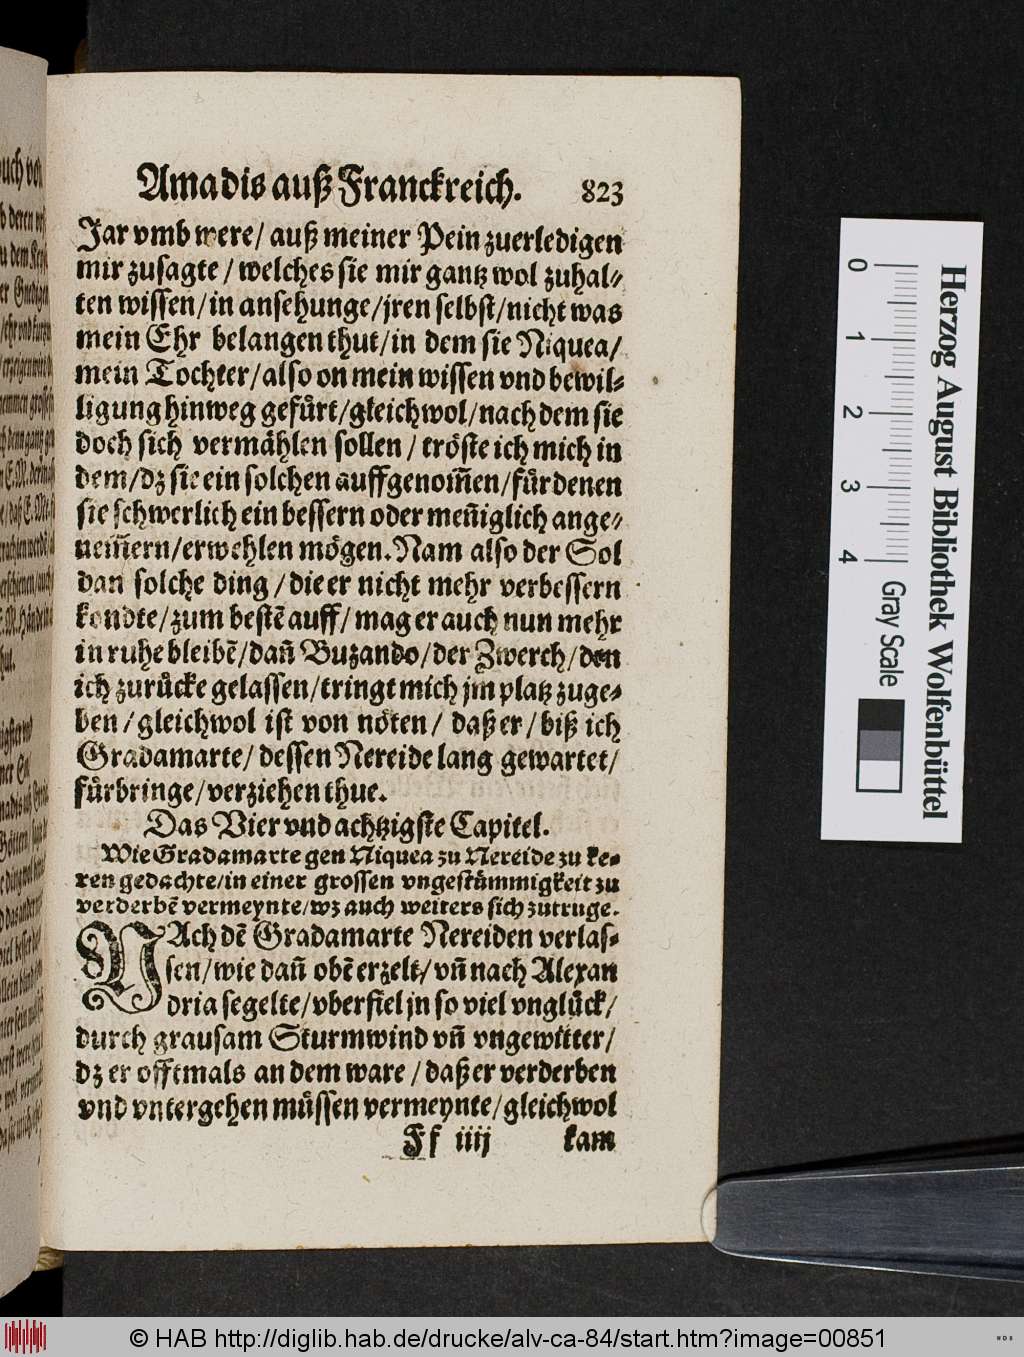 Amadis auß Franckreich. 823
Jar vmb were/ auß meiner Pein zuerledigen
mir zusagte/ welches sie mir gantz wol zuhal-
ten wissen/ in ansehunge/ jren selbst/ nicht was
mein Ehr belangen thut/ in dem sie Niquea/
mein Tochter/ also on mein wissen vnd bewil-
ligung hinweg gefürt/ gleichwol/ nach dem sie
doch sich vermählen sollen/ tröste ich mich in
dem/ dz sie ein solchen auffgenom̃en/ für denen
sie schwerlich ein bessern oder meñiglich ange-
nem̃ern/ erwehlen mögen. Nam also der Sol
dan solche ding/ die er nicht mehr verbessern
kondte/ zum bestē auff/ mag er auch nun mehr
in ruhe bleibē/ dañ Buzando/ der Zwerch/ den
ich zurücke gelassen/ tringt mich jm platz zuge-
ben/ gleichwol ist von nöten/ daß er/ biß ich
Gradamarte/ dessen Nereide lang gewartet/
fürbringe/ verziehen thue.
Das Vier vnd achtzigste Capitel.
Wie Gradamarte gen Niquea zu Nereide zu ke-
ren gedachte/ in einer grossen vngestümmigkeit zu
verderbē vermeynte/ wz auch weiters sich zutruge.
NAch dē Gradamarte Nereiden verlas-
sen/ wie dañ obē erzelt/ vñ nach Alexan
dria segelte/ vberfiel jn so viel vnglück/
durch grausam Sturmwind vñ vngewitter/
dz er offtmals an dem ware/ daß er verderben
vnd vntergehen müssen vermeynte/ gleichwol
Ff iiij kam
Herzog August Bibliothek Wolfenbüttel
0 1 2 3 4 Gray Scale
© HAB http://diglib.hab.de/drucke/alv-ca-84/start.htm?image=00851